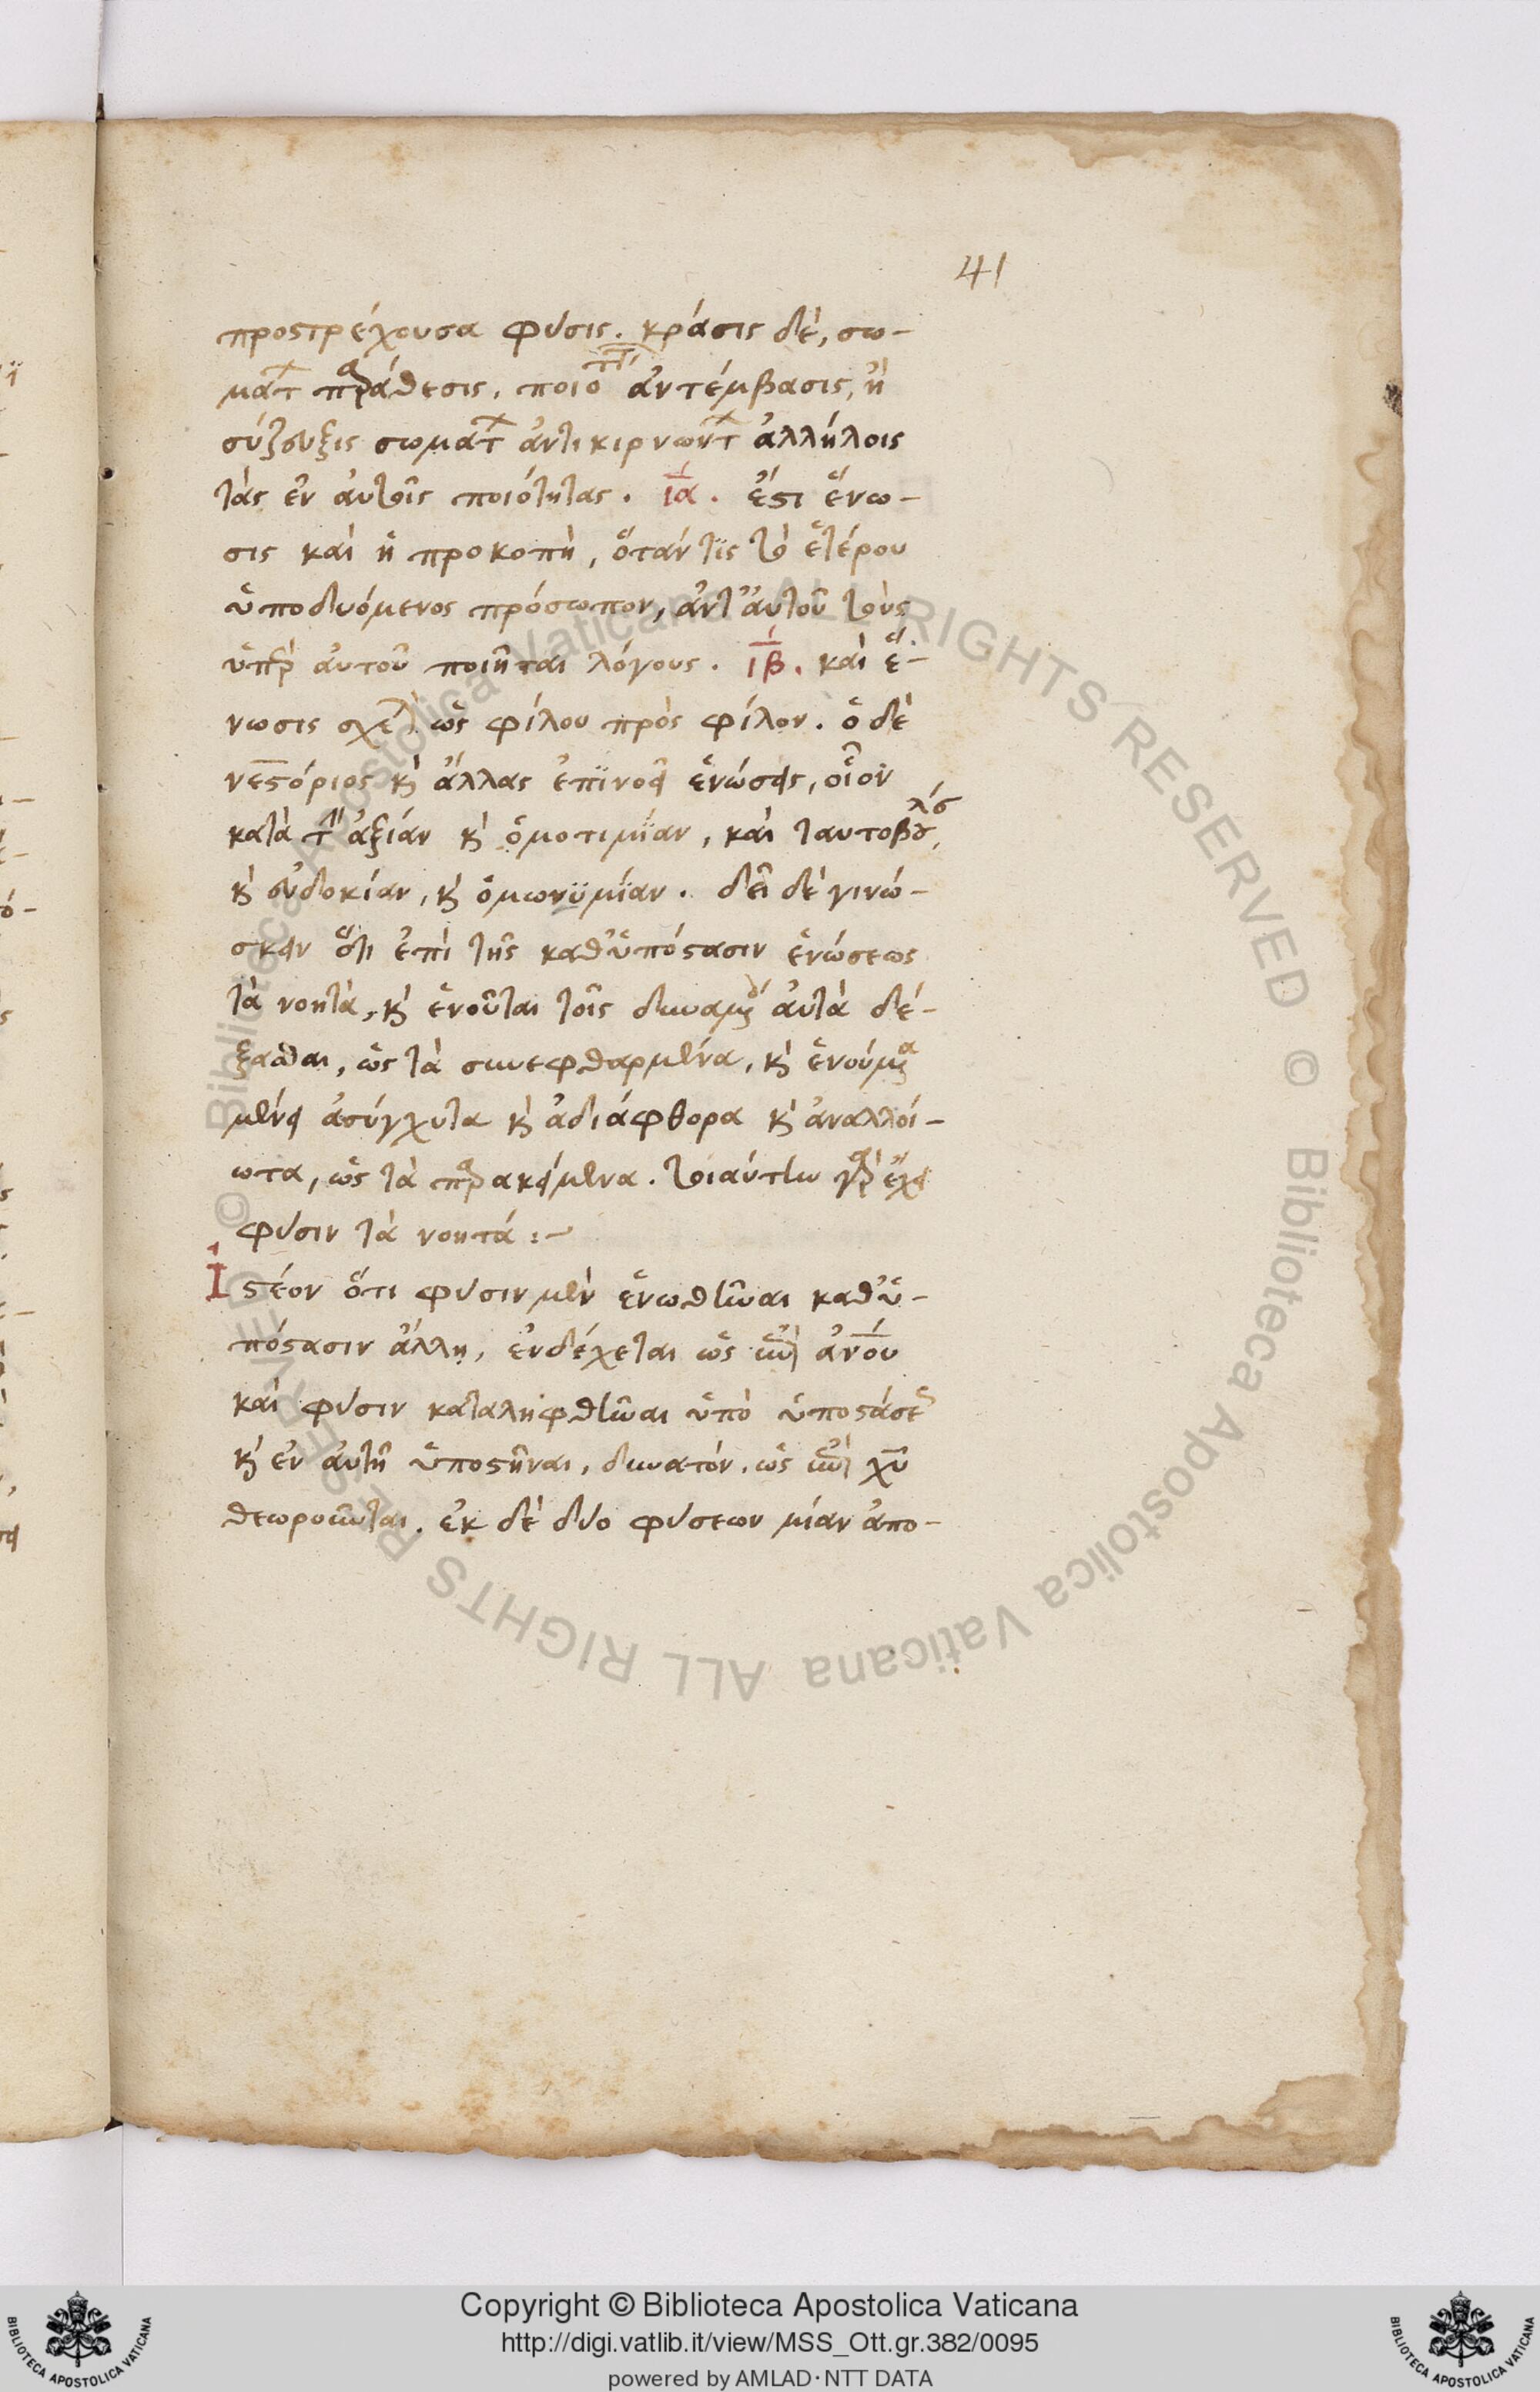 41
προστρέχουσα φύσις. κράσις δὲ, σω-
ματ πράθεσις, ποιοτ ἀντέμβασις, ἢ
σύζευξις σωματ ἀντικιρνώντ ἀλλήλοις
τὰς ἐν αὐτοῖς ποιότητας. ια. ἔστι ἕνω-
σις καὶ ἡ προκοπὴ, ὅτάν τις τὸ ἑτέρου
ὑποδυόμενος πρόσωπον, ἀντ᾽ αὐτοῦ τοὺς
ὑπρ αὐτοῦ ποιῆται λόγους. ιβ. καὶ ἕ-
νωσις σχε ὡς φίλου πρὸς φίλον. ὁ δὲ
νεστόριος κὶ ἄλλας ἐπινοεῖ ἑνώσεις, οἷον
κατὰ τὴν ἀξίαν κὶ ὁμοτιμίαν, καὶ ταυτοβουλίαν,
κὶ εὐδοκίαν, κὶ ὁμωνυμίαν. δεῖ δὲ γινώ-
σκειν ὅτι ἐπὶ τῆς καθ᾽ ὑπόστασιν ἑνώσεως
τὰ νοητὰ, κὶ ἑνοῦται τοῖς δυναμένοις αὐτὰ δέ-
ξασθαι, ὡς τὰ συνεφθαρμένα, κὶ ἑνούμενα
μένει ἀσύγχυτα κὶ ἀδιάφθορα κὶ ἀναλλοί-
ωτα, ὡς τὰ πρακείμενα. τοιαύτην γρ ἔχει
φύσιν τὰ νοητά:~
Ἰστέον ὅτι φύσιν μὲν ἑνωθῆναι καθ᾽ ὑ-
πόστασιν ἄλλη, ἐνδέχεται ὡς ἐπὶ ἀνου
καὶ φύσιν καταληφθῆναι ὑπὸ ὑποστάσε
κὶ ἐν αὐτῆ ὑποστῆναι, δυνατόν. ὡς ἐπὶ χυ
θεωροῦνται. ἐκ δὲ δύο φύσεων μίαν ἀπο-
Copyright © Biblioteca Apostolica Vaticana
http://digi.vatlib.it/view/MSS_Ott.gr.382/0095
powered by AMLAD·NTT DATA
BIBLIOTECA APOSTOLICA VATICANA
BIBLIOTECA APOSTOLICA VATICANA
© Biblioteca Apostolica Vaticana ALL RIGHTS RESERVED © Biblioteca Apostolica Vaticana ALL RIGHTS RESERVED